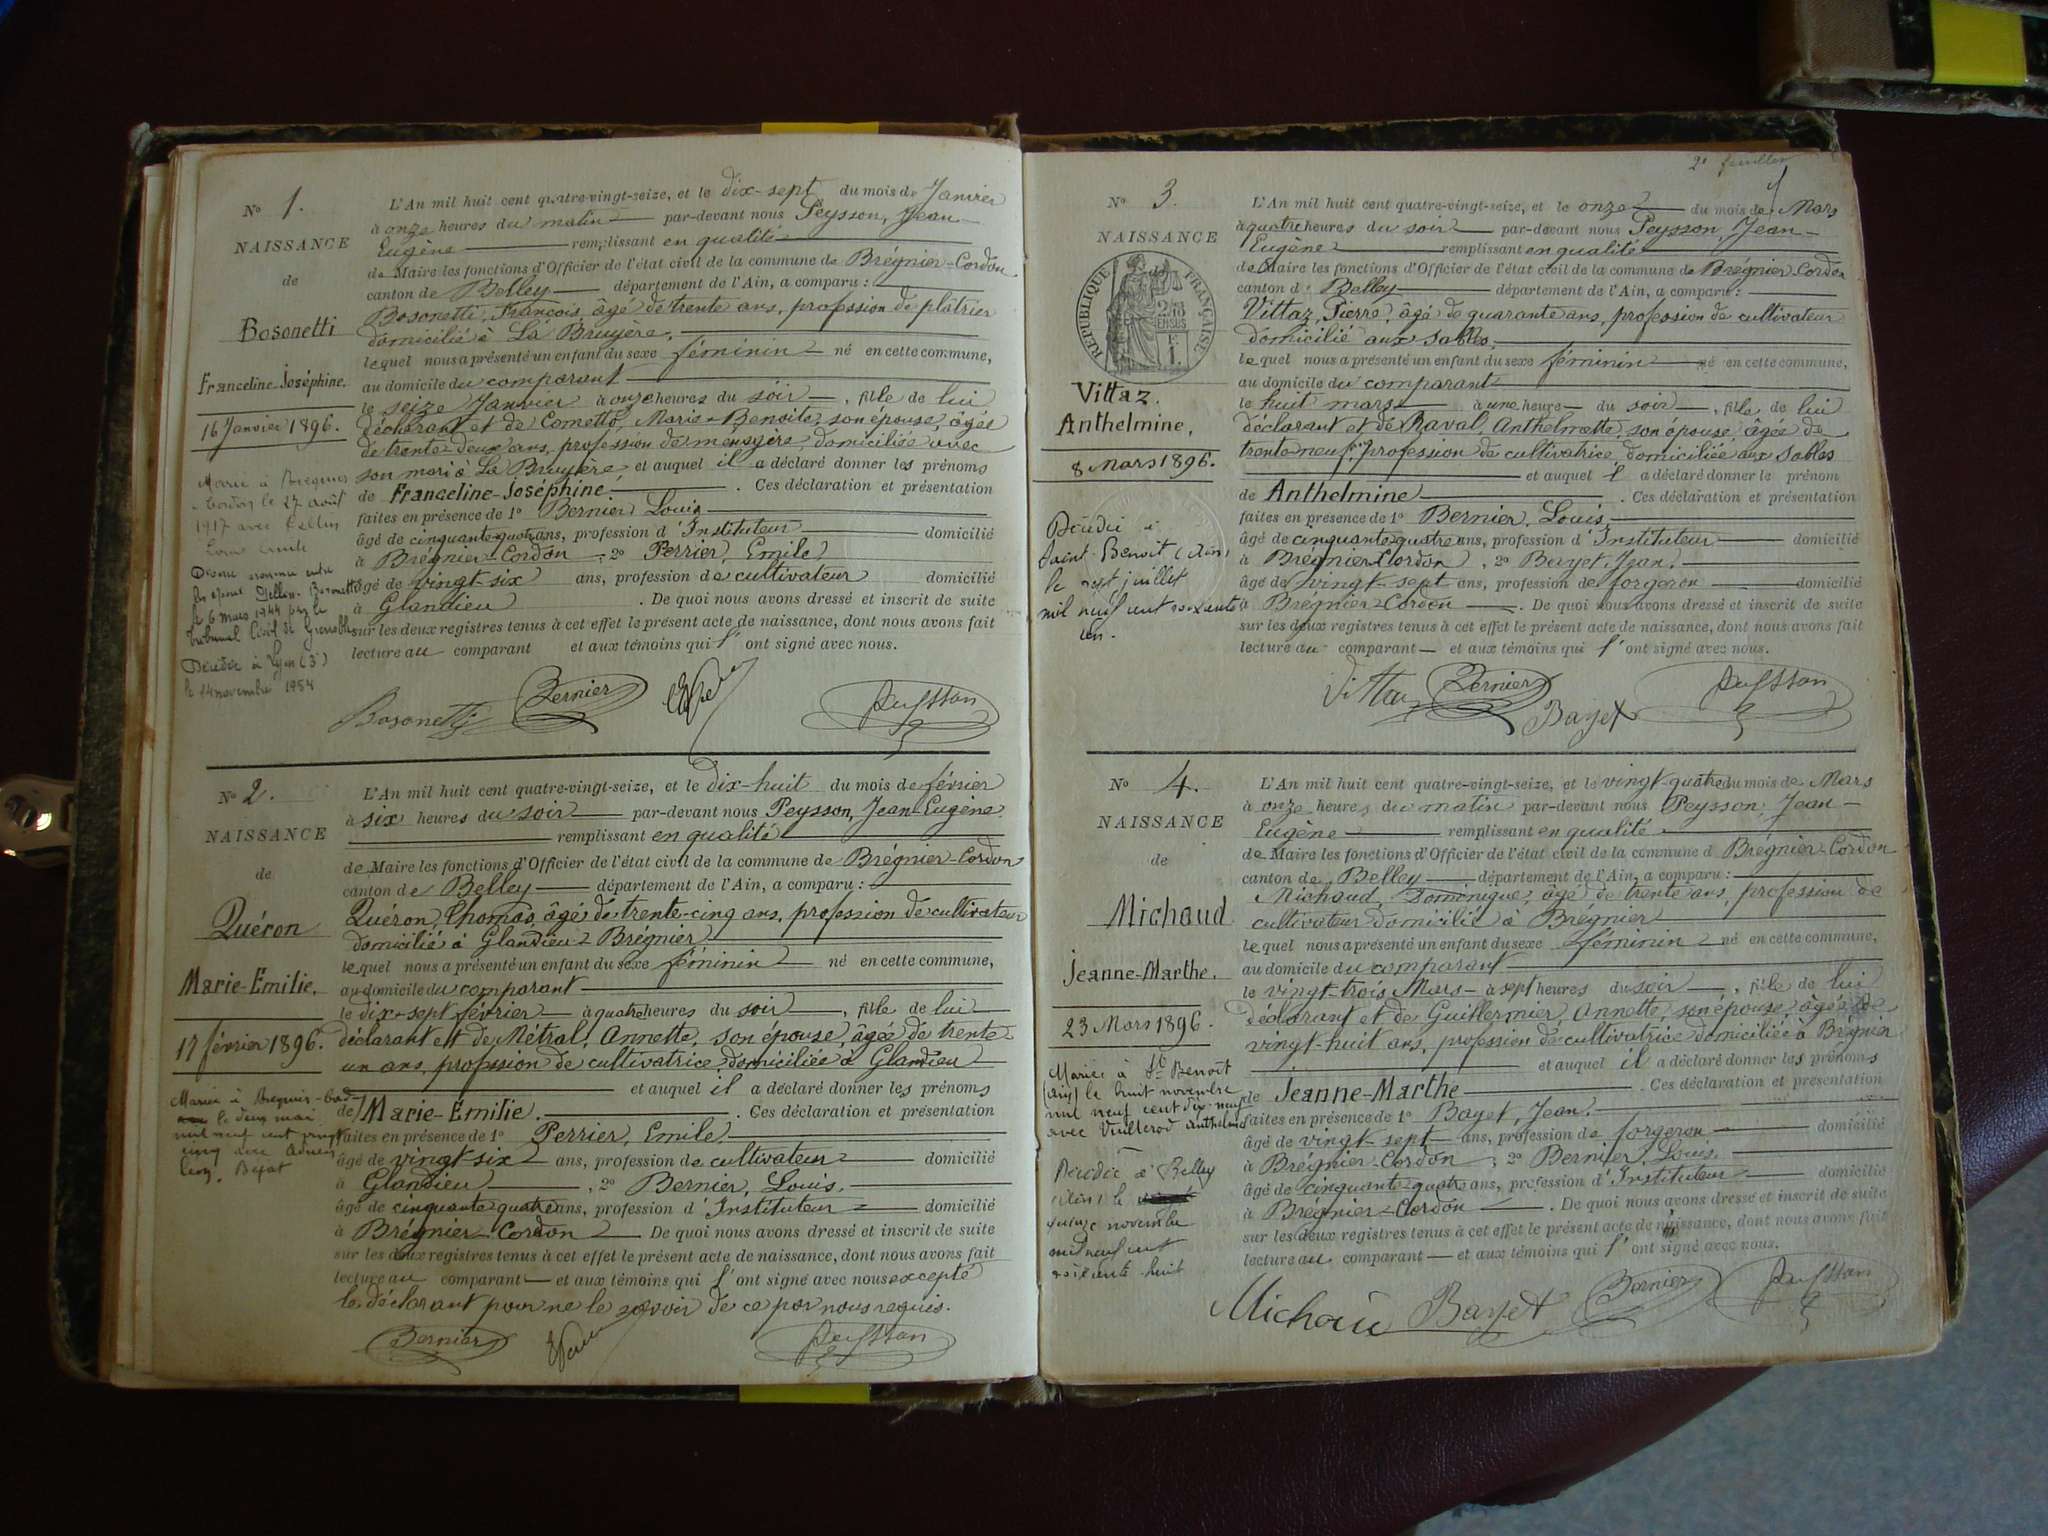 N° 1.
NAISSANCE
de
Bosonetti
Franceline-Joséphine.
16 Janvier 1896.
Mariée à Brégnier
Cordon le 27 août
1917 avec
Louis Emile
Divorce prononcé entre
les époux Bosonetti
le 6 mars 1944 par le
tribunal Civil de Grenoble
Décédée à Lyon (3e)
le 14 novembre 1954
L'An mil huit cent quatre-vingt-seize, et le dix-sept du mois de Janvier
à onze heures du matin par-devant nous Peysson, Jean
Eugène remplissant en qualité
de Maire les fonctions d'Officier de l'état civil de la commune de Brégnier-Cordon
canton de Belley département de l'Ain, a comparu :
Bosonetti, François, âgé de trente ans, profession de plâtrier
domicilié à La Bruyère,
lequel nous a présenté un enfant du sexe féminin né en cette commune,
au domicile du comparant
le seize Janvier à onze heures du soir, fille de lui
déclarant et de Cometto, Marie-Benoite, son épouse, âgée
de trente-deux ans, profession de ménagère, domiciliée avec
son mari à La Bruyère et auquel il a déclaré donner les prénoms
de Franceline-Joséphine. Ces déclaration et présentation
faites en présence de 1° Bernier, Louis
âgé de cinquante-quatre ans, profession d'Instituteur domicilié
à Brégnier-Cordon, 2° Perrier, Emile
âgé de vingt-six ans, profession de cultivateur domicilié
à Glandieu. De quoi nous avons dressé et inscrit de suite
sur les deux registres tenus à cet effet le présent acte de naissance, dont nous avons fait
lecture au comparant et aux témoins qui l'ont signé avec nous.
Bosonetti Bernier Peysson
N° 2.
NAISSANCE
de
Quéron
Marie-Emilie.
17 février 1896.
Mariée à Brégnier-Cordon
le deux mai
mil neuf cent vingt
cinq avec Adrien
Léon
L'An mil huit cent quatre-vingt-seize, et le dix-huit du mois de février
à six heures du soir par-devant nous Peysson, Jean-Eugène
remplissant en qualité
de Maire les fonctions d'Officier de l'état civil de la commune de Brégnier-Cordon
canton de Belley département de l'Ain, a comparu :
Quéron, Thomas, âgé de trente-cinq ans, profession de cultivateur
domicilié à Glandieu-Brégnier
lequel nous a présenté un enfant du sexe féminin né en cette commune,
au domicile du comparant
le dix-sept février à quatre heures du soir, fille de lui
déclarant et de Métral, Annette, son épouse, âgée de trente
un ans, profession de cultivatrice domiciliée à Glandieu
et auquel il a déclaré donner les prénoms
de Marie-Émilie. Ces déclaration et présentation
faites en présence de 1° Perrier, Emile
âgé de vingt-six ans, profession de cultivateur domicilié
à Glandieu, 2° Bernier, Louis.
âgé de cinquante-quatre ans, profession d'Instituteur domicilié
à Brégnier-Cordon De quoi nous avons dressé et inscrit de suite
sur les deux registres tenus à cet effet le présent acte de naissance, dont nous avons fait
lecture au comparant et aux témoins qui l'ont signé avec nous excepté
le déclarant pour ne le savoir de ce par nous requis.
Bernier Peysson
2e feuillet
N° 3.
NAISSANCE
RÉPUBLIQUE FRANÇAISE
Vittaz.
Anthelmine,
8 Mars 1896.
Décédée à
Saint-Benoit (Ain)
le sept juillet
mil neuf cent soixante
un.
L'An mil huit cent quatre-vingt-seize, et le onze du mois de Mars
à quatre heures du soir par-devant nous Peysson, Jean-
Eugène remplissant en qualité
de Maire les fonctions d'Officier de l'état civil de la commune de Brégnier-Cordon
canton d. Belley département de l'Ain, a comparu :
Vittaz, Pierre, âgé de quarante ans, profession de cultivateur
domicilié aux Sables,
lequel nous a présenté un enfant du sexe féminin né en cette commune,
au domicile du comparant
le huit mars à une heure du soir, fille de lui
déclarant et de Raval, Anthelmette, son épouse, âgée de
trente-neuf, profession de cultivatrice domiciliée aux Sables
et auquel il a déclaré donner le prénom
de Anthelmine. Ces déclaration et présentation
faites en présence de 1° Bernier, Louis,
âgé de cinquante-quatre ans, profession d'Instituteur domicilié
à Brégnier-Cordon, 2° Bayet, Jean.
âgé de vingt-sept ans, profession de forgeron domicilié
à Brégnier-Cordon. De quoi nous avons dressé et inscrit de suite
sur les deux registres tenus à cet effet le présent acte de naissance, dont nous avons fait
lecture au comparant et aux témoins qui l'ont signé avec nous.
Vittaz Bernier Bayet Peysson
N° 4.
NAISSANCE
de
Michaud
Jeanne-Marthe.
23 Mars 1896.
Mariée à St Benoît
(Ain) le huit novembre
mil neuf cent dix-neuf
avec Vuillerod Anthelme
Décédée à Belley
(Ain) le
quinze novembre
mil neuf cent
soixante-huit
L'An mil huit cent quatre-vingt-seize, et le vingt-quatre du mois de Mars
à onze heures du matin par-devant nous Peysson, Jean-
Eugène remplissant en qualité
de Maire les fonctions d'Officier de l'état civil de la commune d Brégnier-Cordon
canton de Belley département de l'Ain, a comparu :
Michaud, Dominique, âgé de trente ans, profession de
cultivateur domicilié à Brégnier
lequel nous a présenté un enfant du sexe féminin né en cette commune,
au domicile du comparant
le vingt-trois Mars à sept heures du soir, fille de lui
déclarant et de Guillermier, Annette, son épouse, âgée de
vingt-huit ans, profession de cultivatrice domiciliée à Brégnier
et auquel il a déclaré donner les prénoms
de Jeanne-Marthe. Ces déclaration et présentation
faites en présence de 1° Bayet, Jean.
âgé de vingt-sept ans, profession de forgeron domicilié
à Brégnier-Cordon, 2° Bernier, Louis.
âgé de cinquante-quatre ans, profession d'Instituteur domicilié
à Brégnier-Cordon. De quoi nous avons dressé et inscrit de suite
sur les deux registres tenus à cet effet le présent acte de naissance, dont nous avons fait
lecture au comparant et aux témoins qui l'ont signé avec nous.
Michaud Bayet Bernier Peysson